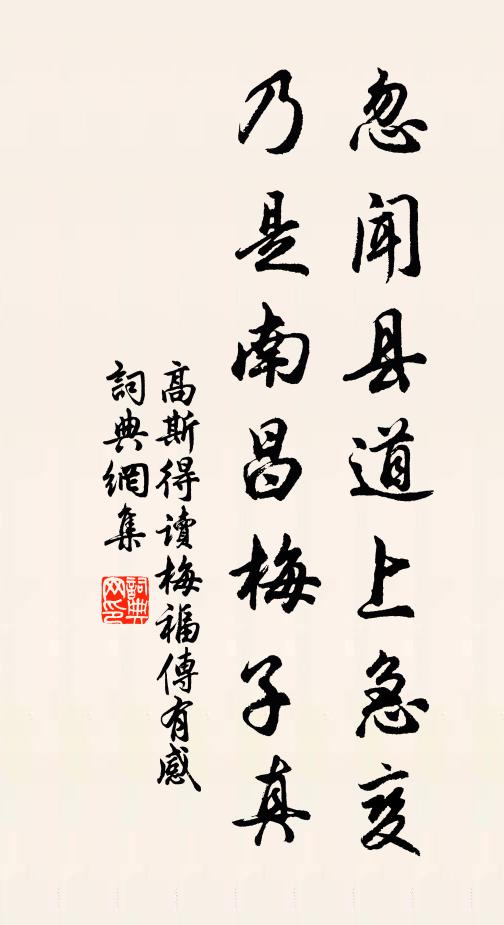 忽闻县道上急变
乃是南昌梅子真
高斯得读梅福傳有感
詞典網集
詞典网印